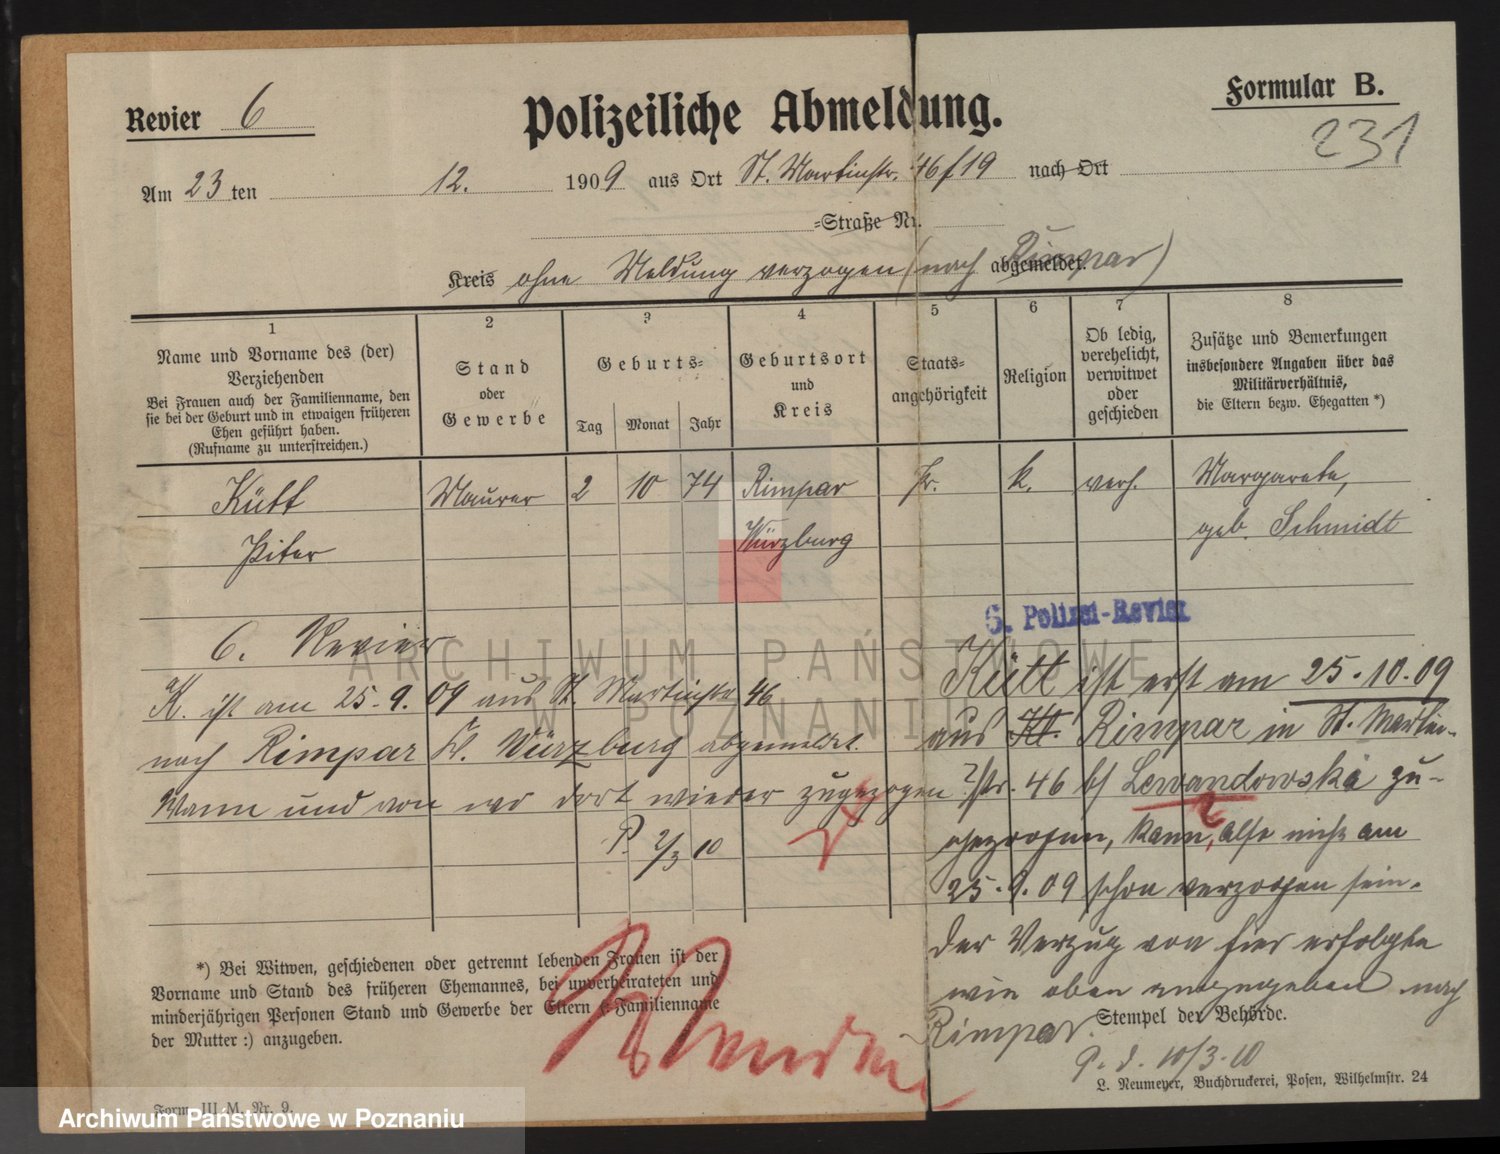 Revier 6
Polizeiliche Abmeldung.
Formular B.
231
Am 23 ten 12. 1909 aus Ort St. Martinstr. 46 f 19 nach Ort
=Straße Nr.
Kreis ohne Meldung verzogen (nach Rimpar) abgemeldet.
1 2 3 4 5 6 7 8
Name und Vorname des (der)
Verziehenden
Bei Frauen auch der Familienname, den
sie bei der Geburt und in etwaigen früheren
Ehen geführt haben.
(Rufname zu unterstreichen.)
Stand
oder
Gewerbe
Geburts=
Tag Monat Jahr
Geburtsort
und
Kreis
Staats=
angehörigkeit
Religion
Ob ledig,
verehelicht,
verwitwet
oder
geschieden
Zusätze und Bemerkungen
insbesondere Angaben über das
Militärverhältnis,
die Eltern bezw. Ehegatten *)
Kütt Maurer 2 10 74 Rimpar k. verh. Margarete,
Peter Würzburg geb. Schmidt
6. Polizei-Revier
6. Revier
K. ist am 25.9.09 aus St. Martinstr 46
nach Rimpar Kr. Würzburg abgemeldet.
Wann und von wo dort wieder zugezogen?
P. 2/3 10
Kütt ist erst am 25.10.09
aus Rimpar in St. Martin-
str. 46 b/ Lewandowska zu-
gezogen, kann, also nicht am
25.9.09 schon verzogen sein.
Der Verzug von hier erfolgte
wie oben angegeben nach
Rimpar.
P. d. 10/3.10
*) Bei Witwen, geschiedenen oder getrennt lebenden Frauen ist der
Vorname und Stand des früheren Ehemannes, bei unverheirateten und
minderjährigen Personen Stand und Gewerbe der Eltern (: Familienname
der Mutter :) anzugeben.
Stempel der Behörde.
L. Neumeyer, Buchdruckerei, Posen, Wilhelmstr. 24
Form. III M. Nr. 9.
ARCHIWUM PAŃSTWOWE
W POZNANIU
Archiwum Państwowe w Poznaniu